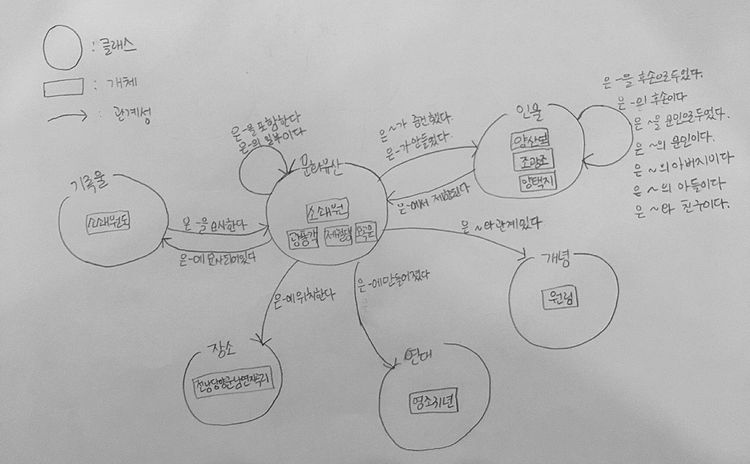 : 클래스
: 개체
: 관계성
은 ~을 포함한다
은 ~의 일부이다
문화유산
소쇄원
광풍각
제월당
은 ~가 중건했다.
은 ~가 만들었다.
은 ~에서 제향된다
인물
양산보
조광조
양택지
은 ~을 후손으로 두었다.
은 ~의 후손이다
은 ~을 문인으로 두었다.
은 ~의 문인이다.
은 ~의 아버지이다
은 ~의 아들이다
은 ~와 친구이다.
기록물
소쇄원도
은 ~을 묘사한다
은 ~에 묘사되어있다
은 ~와 관계있다
개념
원림
은 ~에 위치한다
장소
은 ~에 만들어졌다
연대